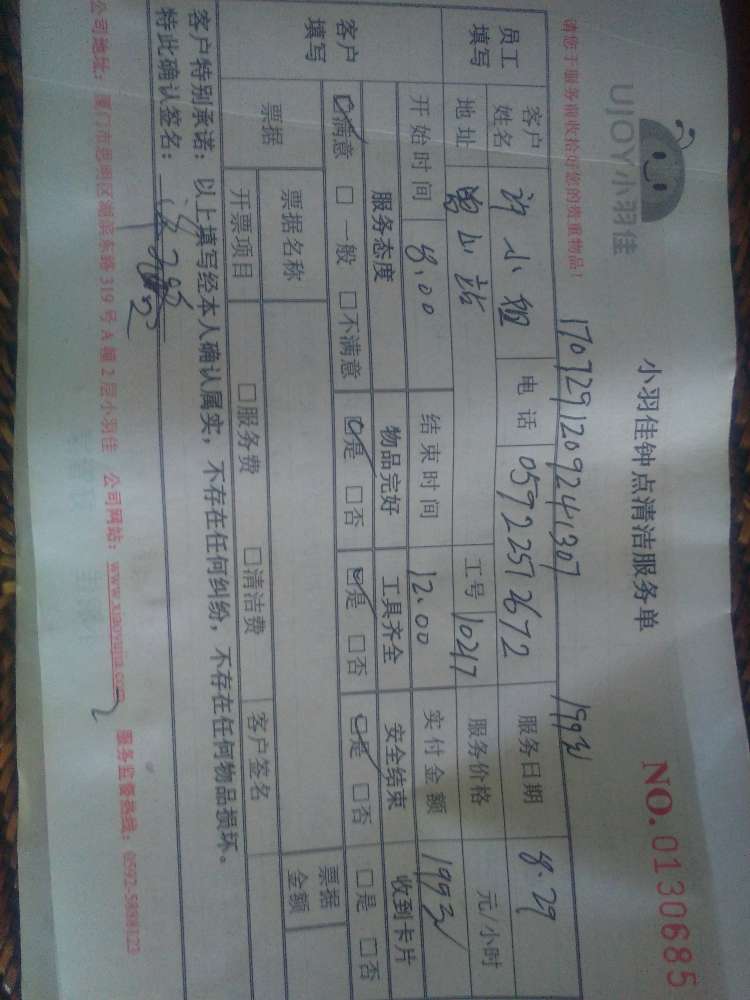 UJOY小羽佳
小羽佳钟点清洁服务单
NO.0130685
请您于服务前收拾好您的贵重物品!
1707291209241307 199元
员工填写 客户姓名 许小姐 电话 05922572672 服务日期 8.29
地址 工号 10217 服务价格 元/小时
开始时间 8.00 结束时间 12.00 实付金额 199元
客户填写 服务态度 物品完好 工具齐全 安全结束 收到卡片
☑满意 □一般 □不满意 ☑是 □否 ☑是 □否 ☑是 □否 □是 □否
票据 票据名称 票据金额
开票项目 □服务费 □清洁费 客户签名
客户特别承诺：以上填写经本人确认属实，不存在任何纠纷，不存在任何物品损坏。
特此确认签名：
公司地址：厦门市思明区湖滨东路319号A幢2层小羽佳 公司网站：www.xiaoyujia.com 服务监督热线：0592-5888123